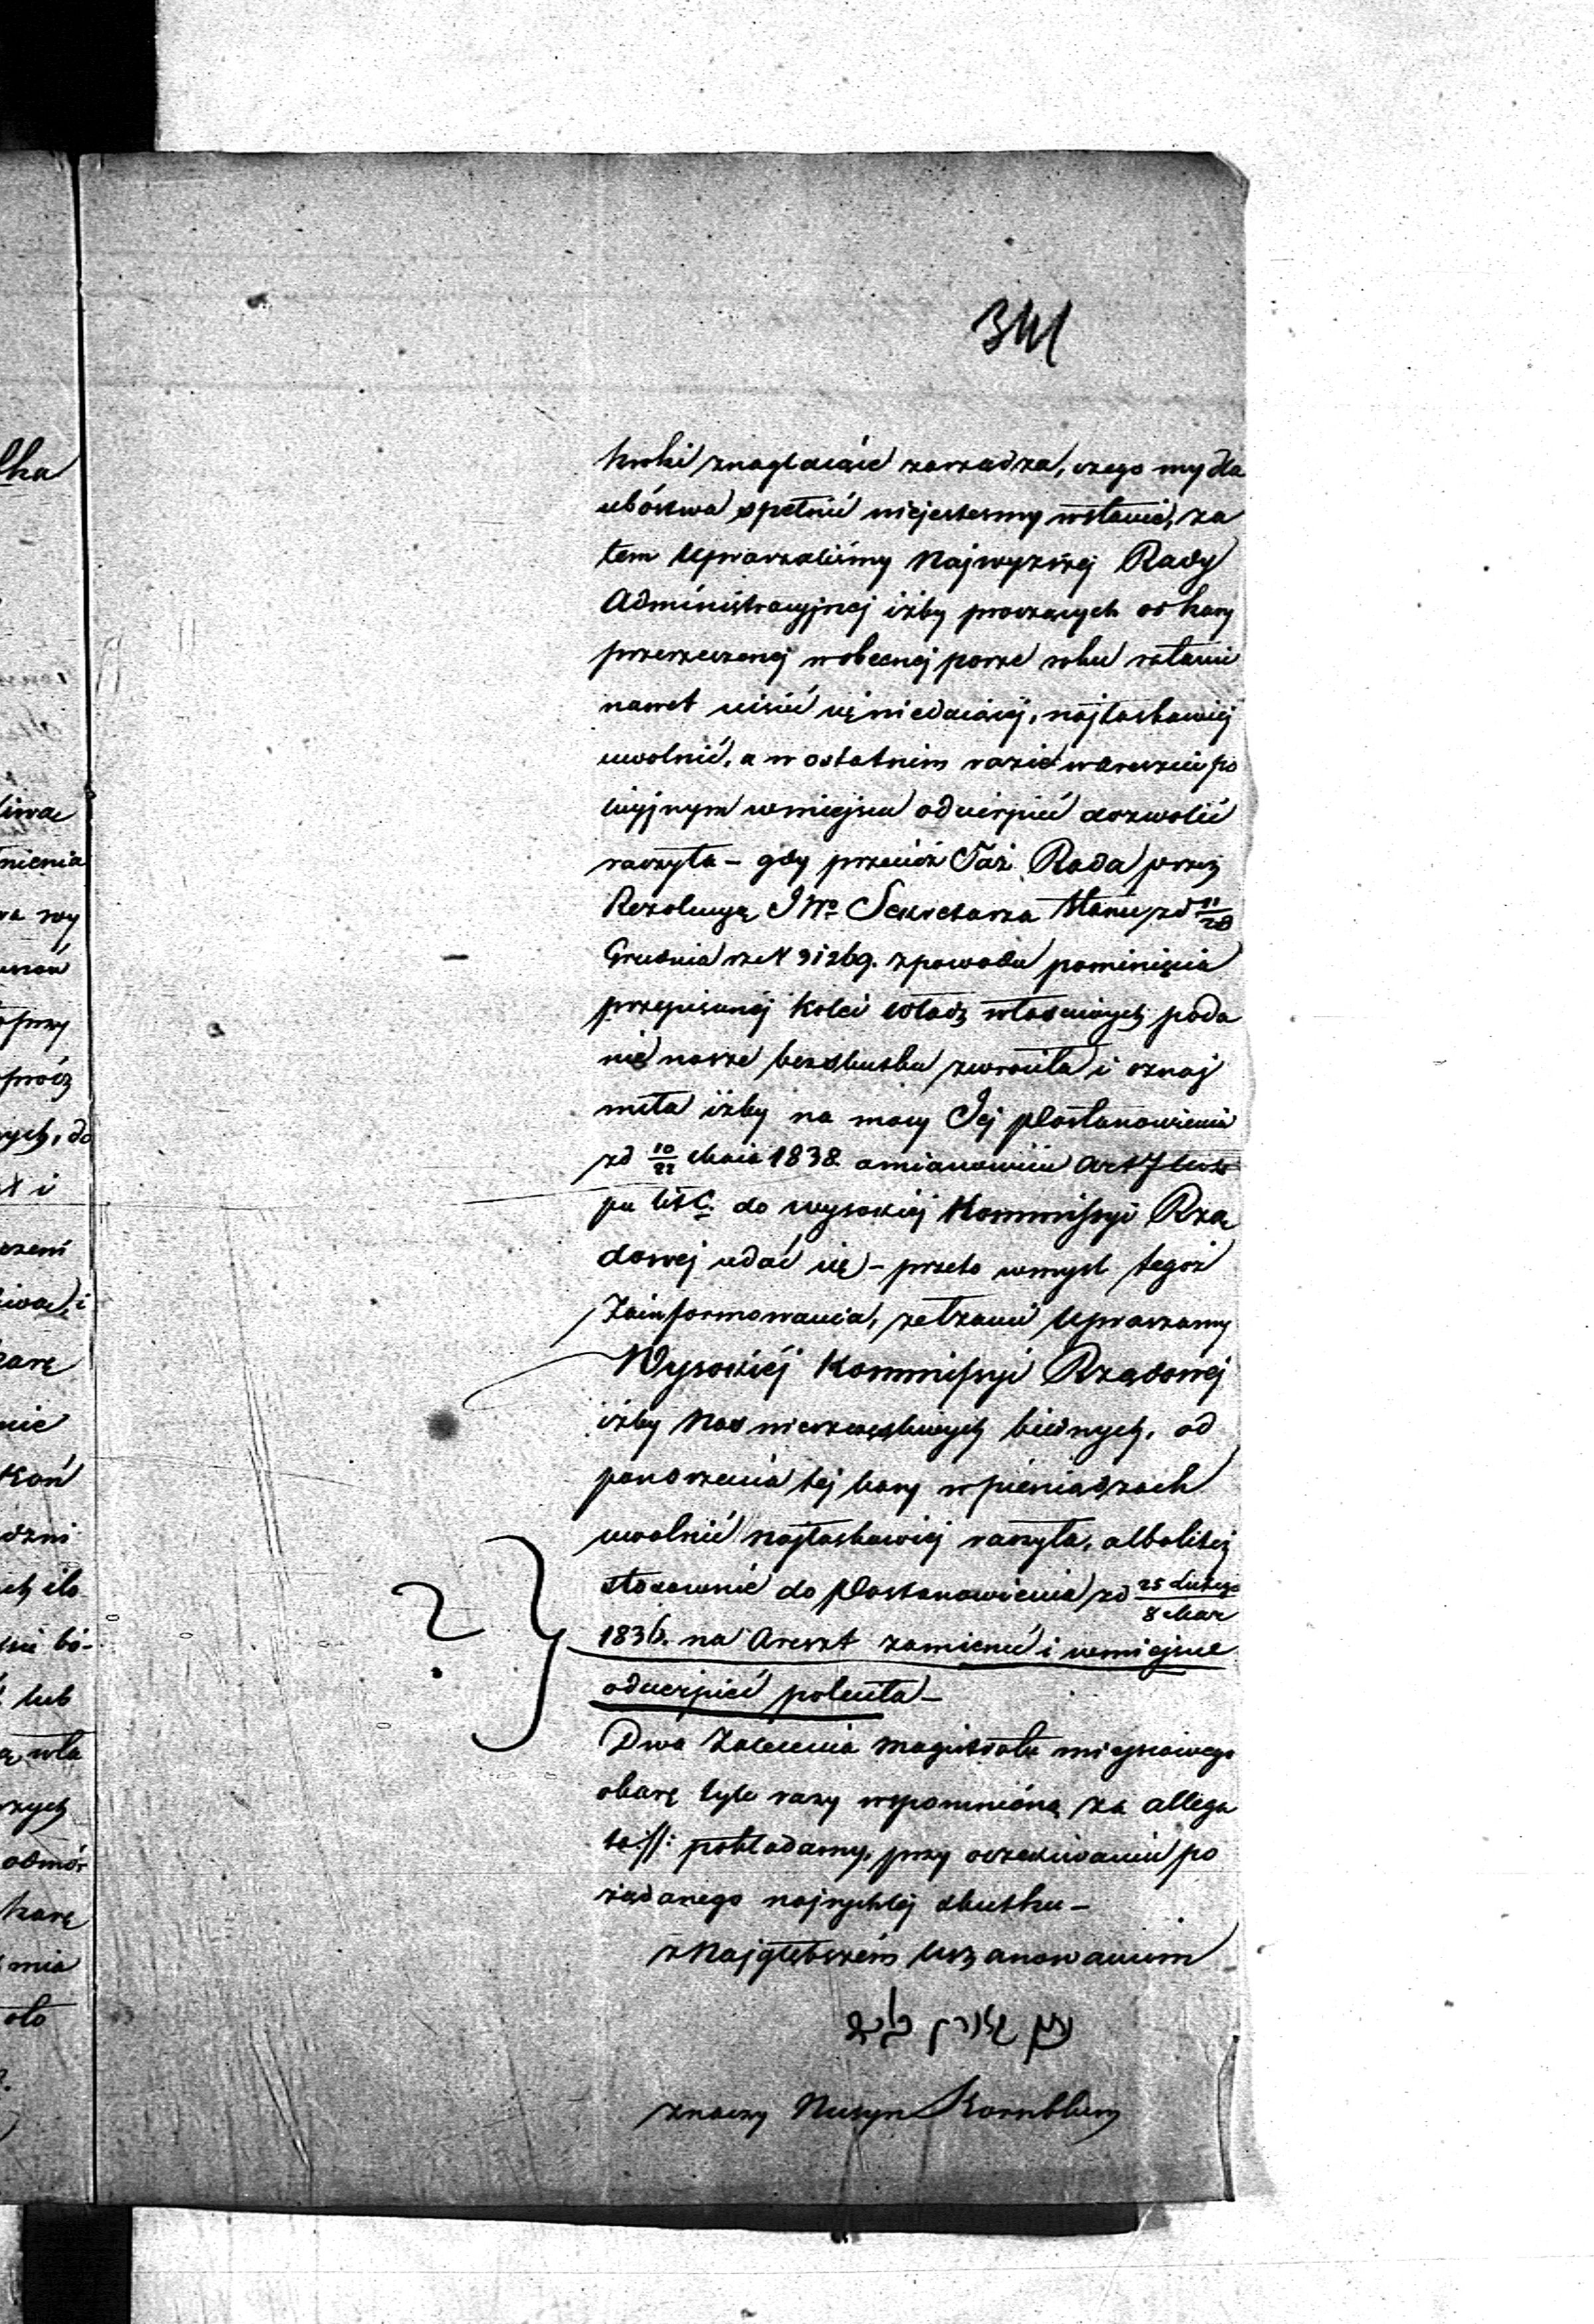 341
kroki znaglaiące zarządza, czego my dla
ubóstwa spełnić niejestesmy wstanie, za
tem Upraszaliśmy Najwyższej Rady
Administracyjnej iżby proszących od kary
przerzeczonej wobecnej porze roku
nawet uiścić się niedaiącej, najłaskawiej
uwolnić, a w ostatnim razie w areszcie po
licyjnym wmiejscu odcierpieć dozwolić
raczyła – gdy przecież Taż Rada przez
Rezolucyą JWo Sekretarza Stanu zd
Grudnia rz N zpowodu pominięcia
przepisanej kolei władz właściwych poda
nie nasze bezskutku zwróciła i oznaj
miła iżby na mocy Jej Postanowienia
zd 10/22 Maia 1838. amianowicie Art 7
pu lit C. do wysokiej Kommissyi Rzą
dowej udać się – przeto wmysl tegoż
Zainformowania, zełzami Upraszamy
Wysokiéj Kommissyi Rządowej
iżby Nas nieszczęsliwych biednych, od
ponoszenia tej kary w pieniądzach
uwolnić Najłaskawiej raczyła, albolitéż
stosownie do Postanowienia zd 25 Lutego/8 Mar
1836. na Areszt zamienić i wmiejscu
odcierpieć poleciła –
Dwa Zalecenia Magistratu mieyscowego
okarę tyle razy wspomnioną za allega
ta :/: pokładamy, przy oczekiwaniu po
żądanego najrychléj skutku –
z Najgłębszém Uszanowaniem
znaczy Nusyn Kornblum